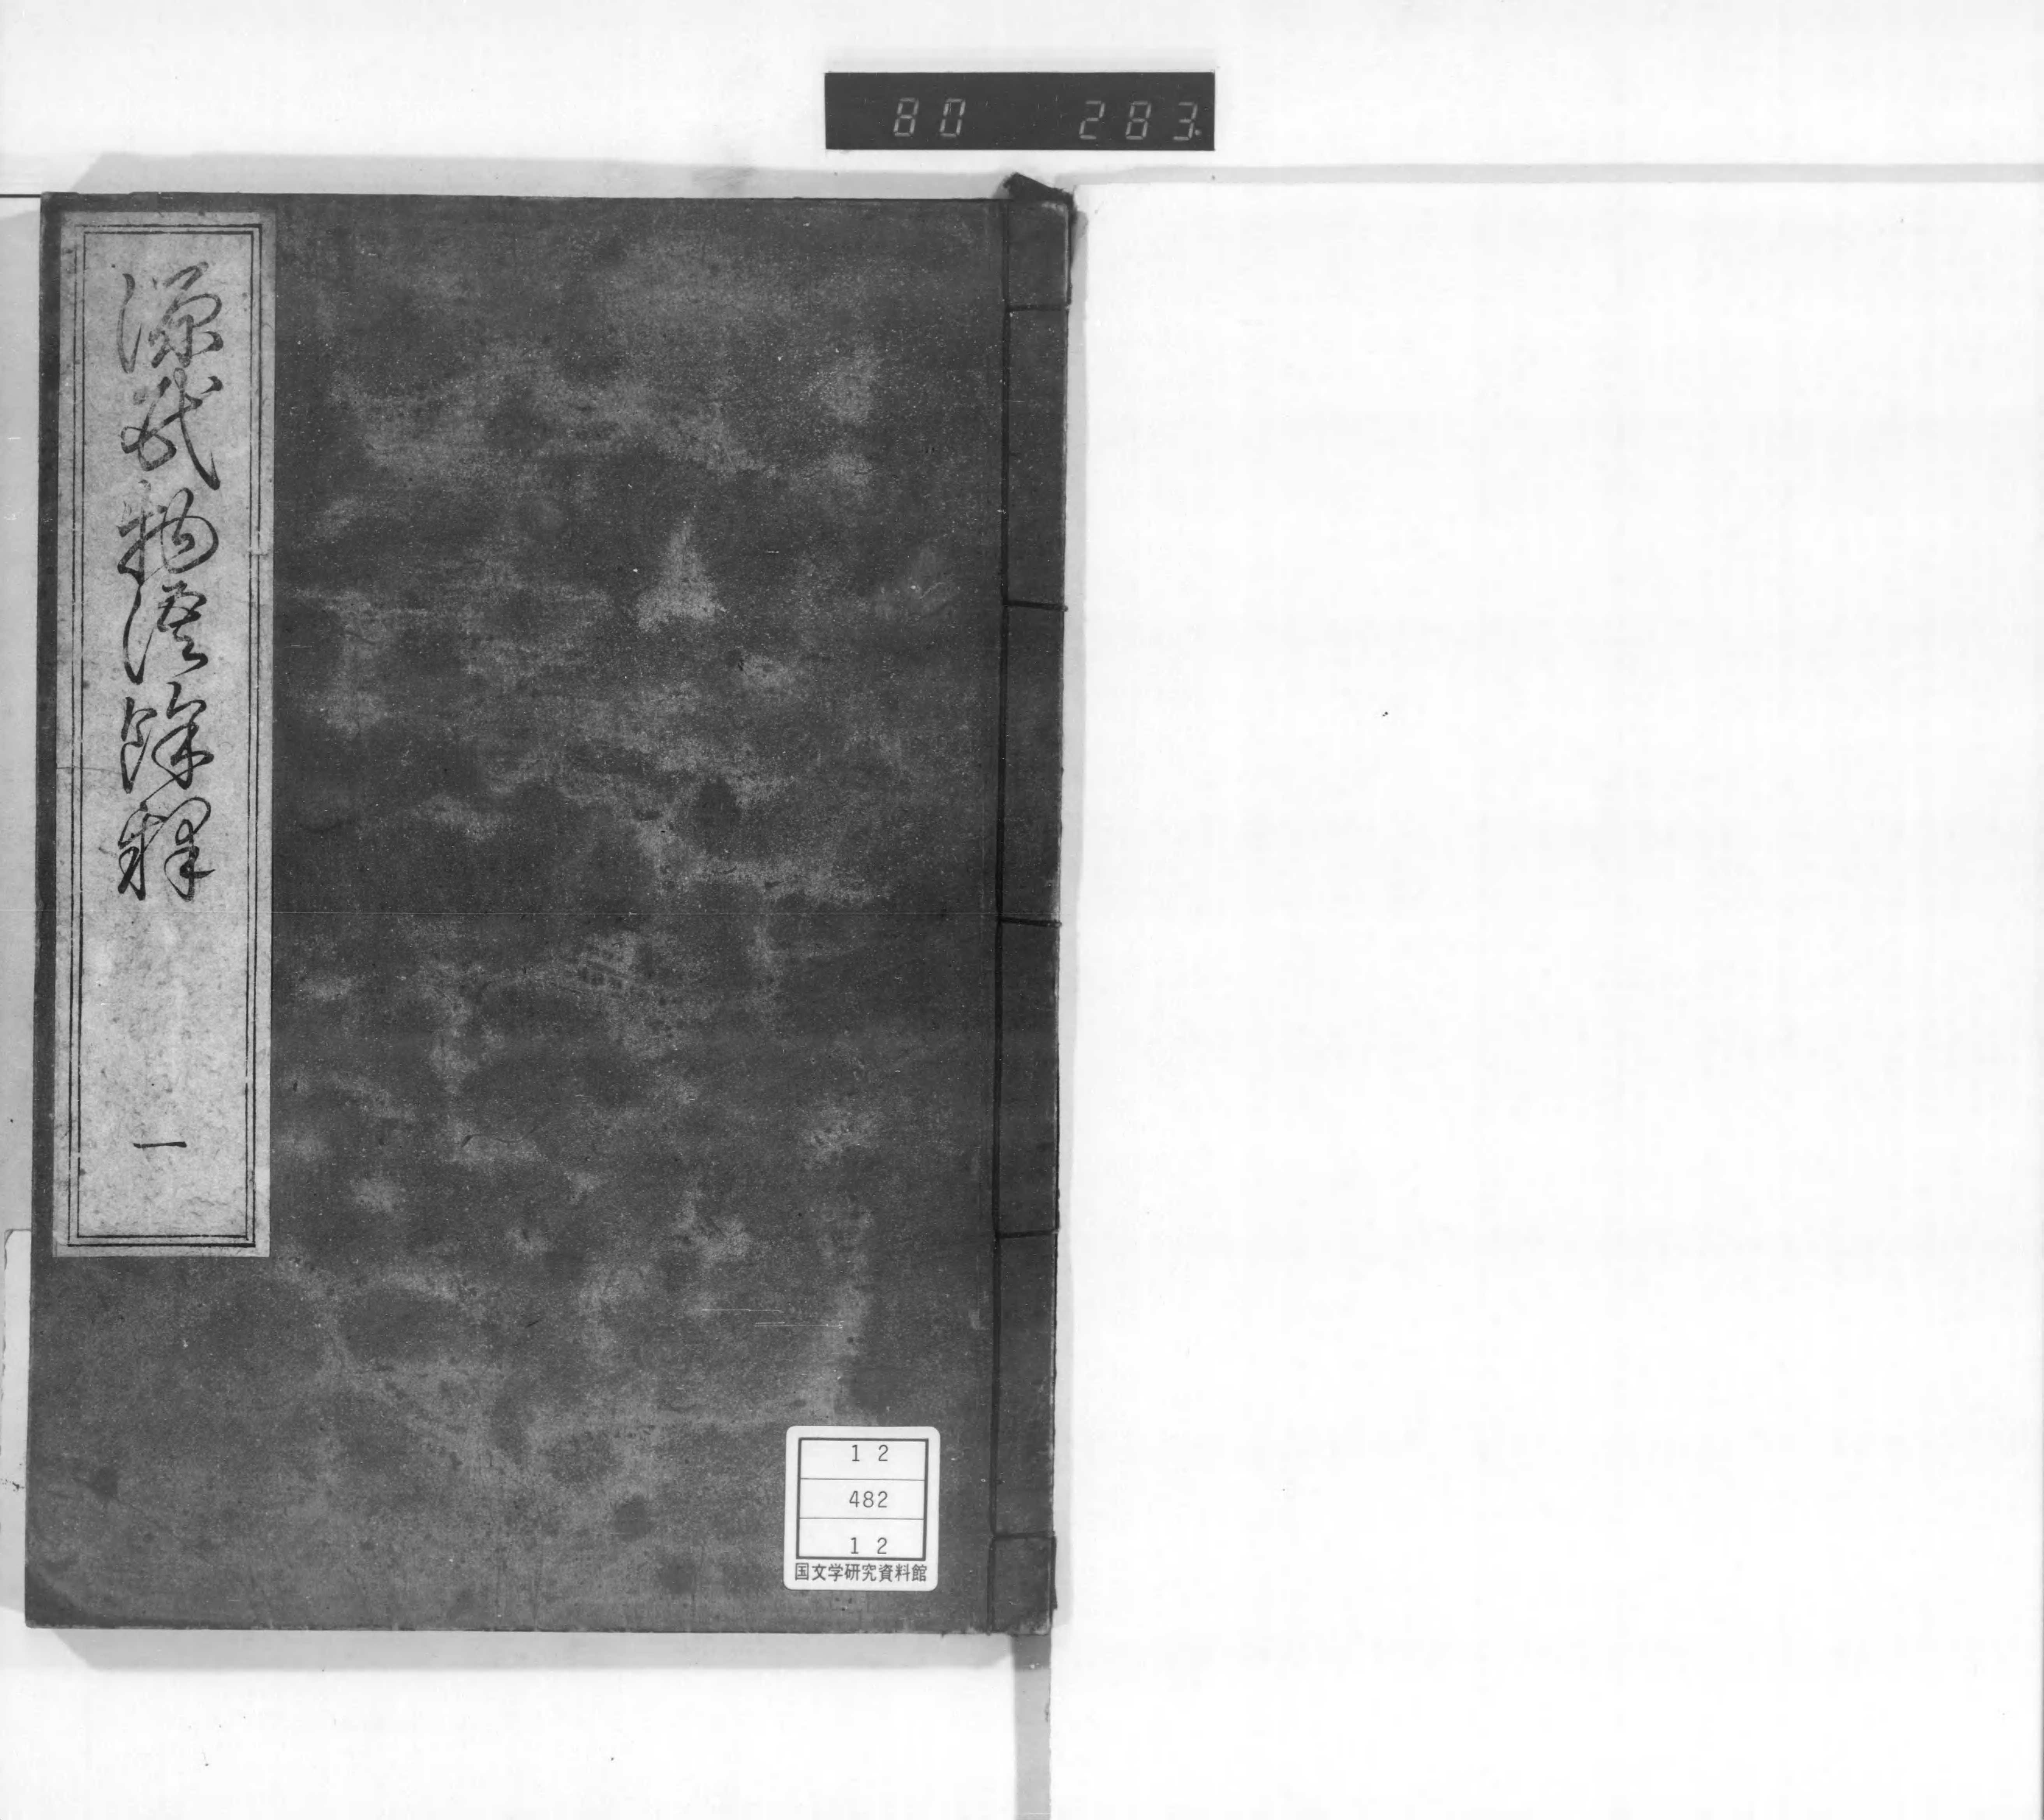 80 283.
源氏物語餘釋
一
12
482
12
国文学研究資料館